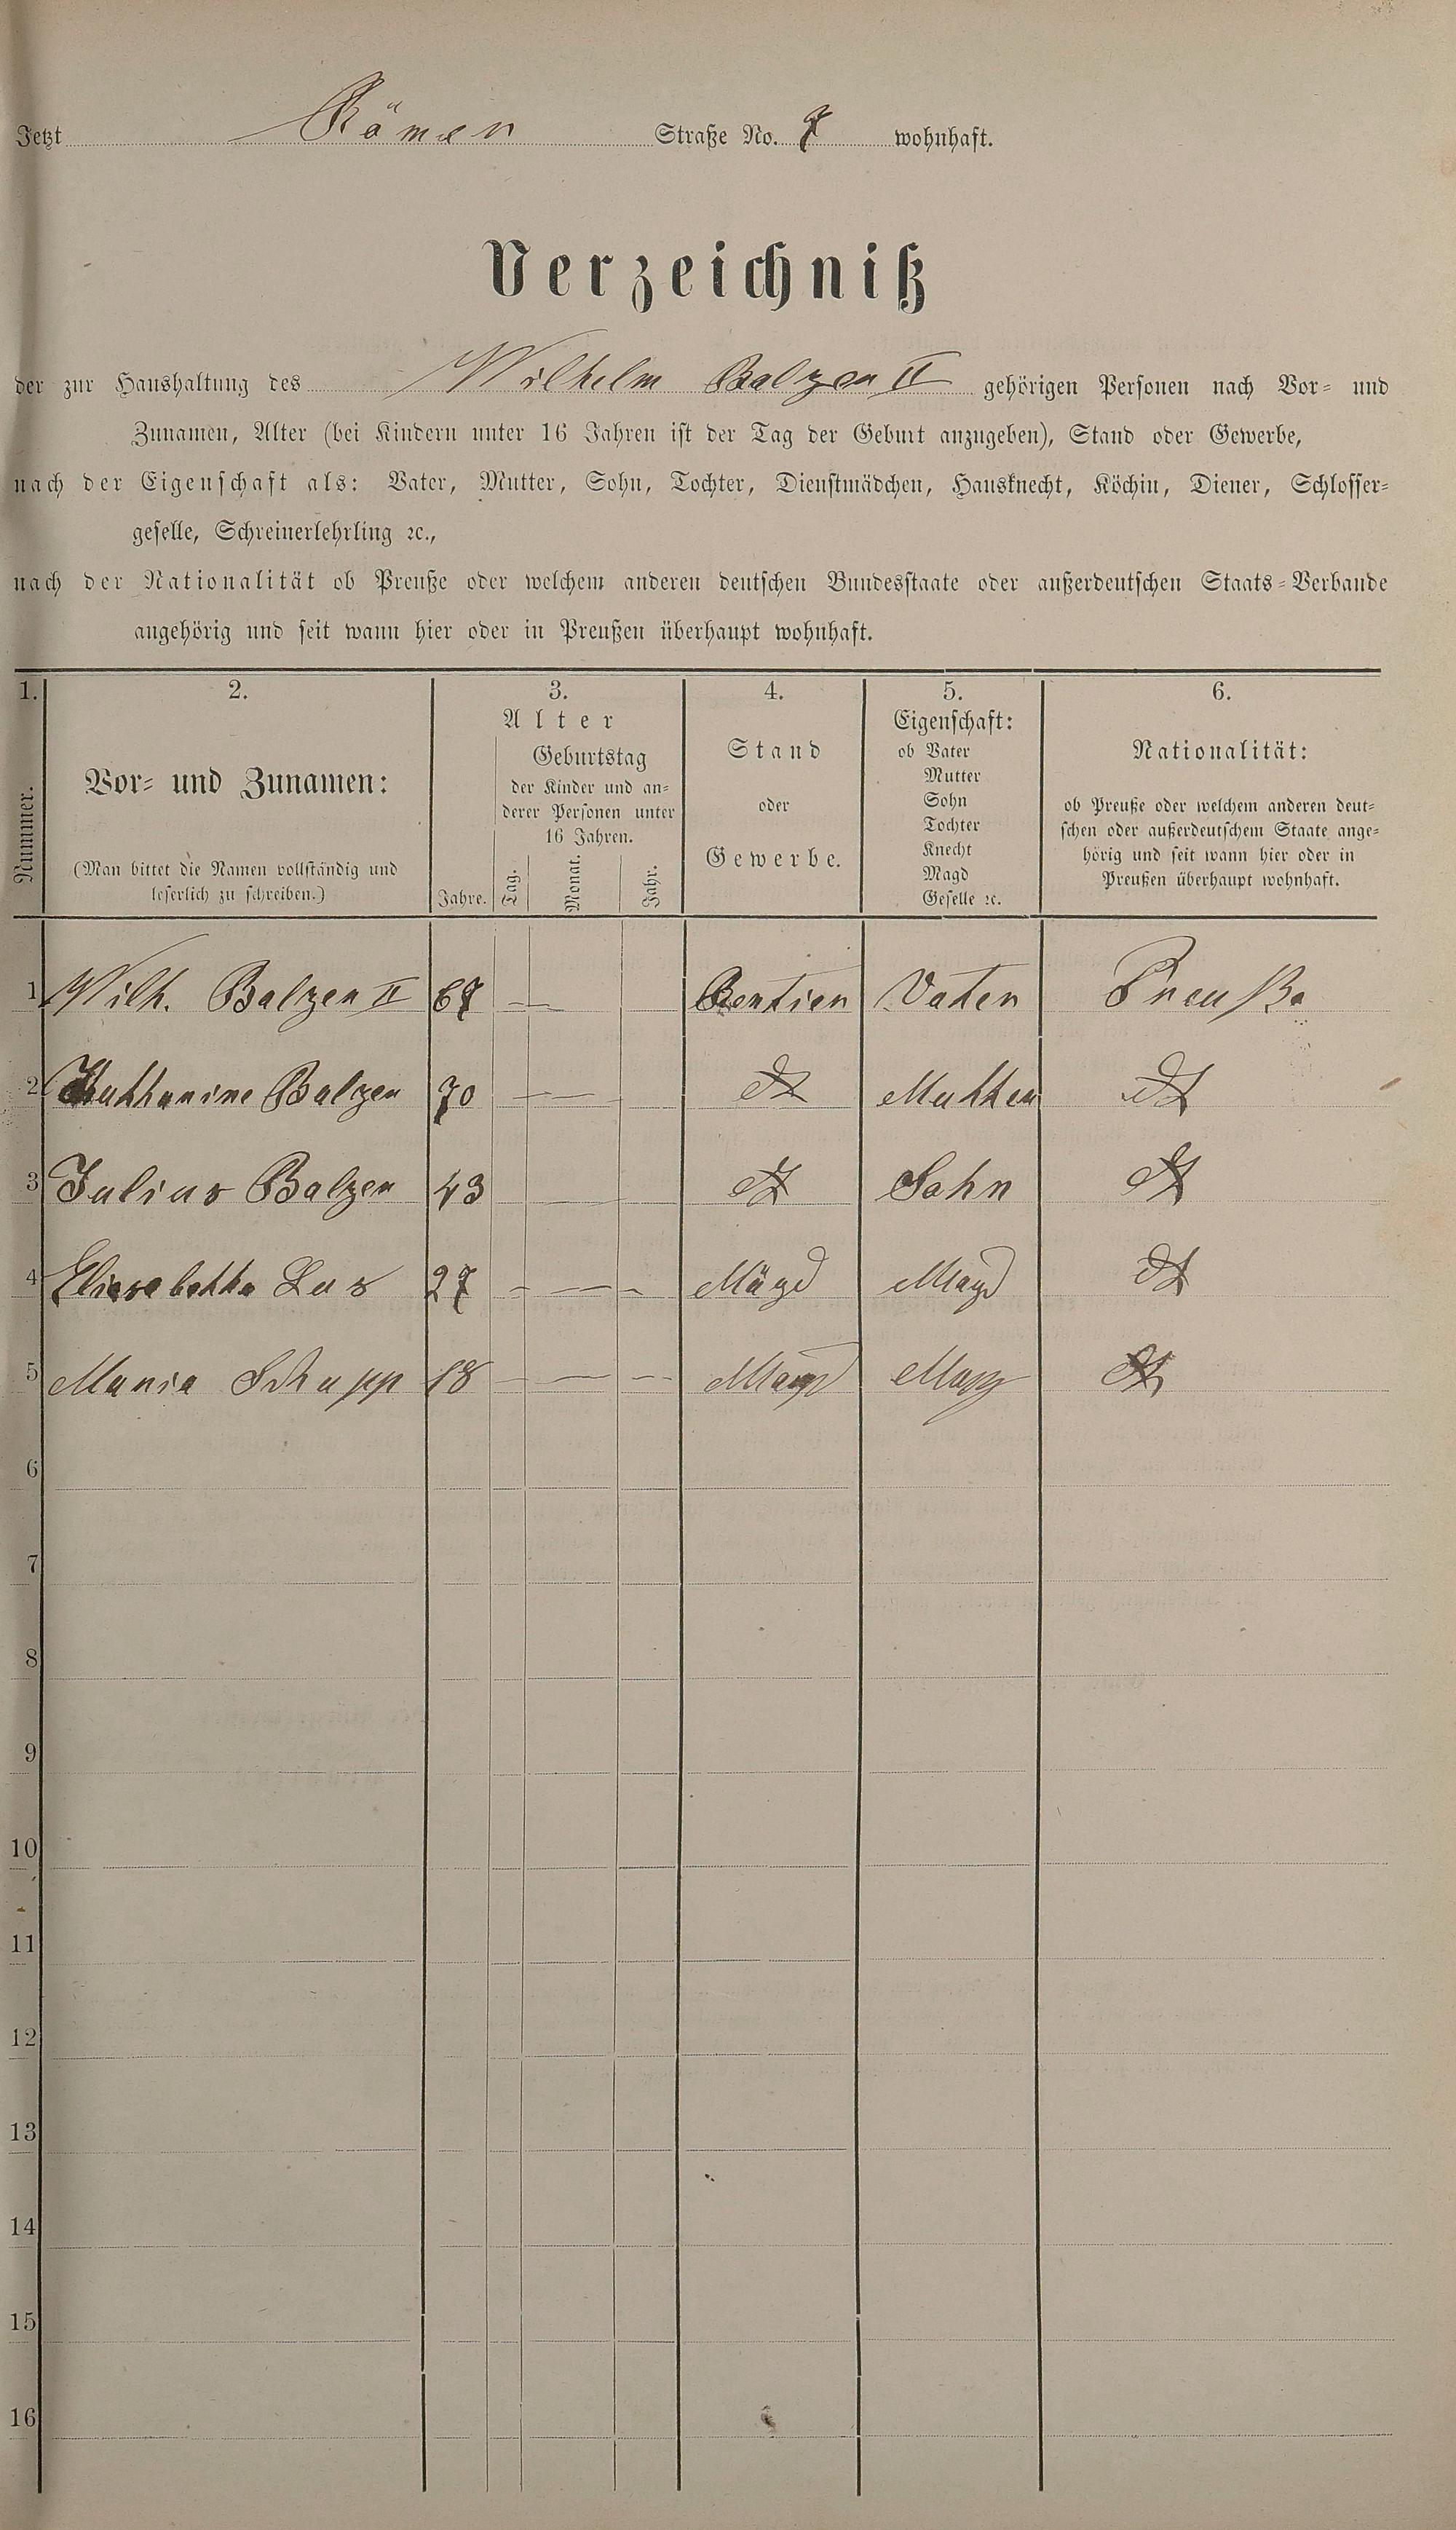 Jetzt Römer Straße No. 7 wohnhaft.
Verzeichniß
der zur Haushaltung des Wilhelm Balzer II gehörigen Personen nach Vor- und
Zunamen, Alter (bei Kindern unter 16 Jahren ist der Tag der Geburt anzugeben), Stand oder Gewerbe,
nach der Eigenschaft als: Vater, Mutter, Sohn, Tochter, Dienstmädchen, Hausknecht, Köchin, Diener, Schlosser-
geselle, Schreinerlehrling ꝛc.,
nach der Nationalität ob Preuße oder welchem anderen deutschen Bundesstaate oder außerdeutschen Staats-Verbande
angehörig und seit wann hier oder in Preußen überhaupt wohnhaft.
1. 2. 3. 4. 5. 6.
Nummer.
Vor- und Zunamen:
(Man bittet die Namen vollständig und
leserlich zu schreiben.)
Alter
Jahre.
Geburtstag
der Kinder und an-
derer Personen unter
16 Jahren.
Tag. Monat. Jahr.
Stand
oder
Gewerbe.
Eigenschaft:
ob Vater
Mutter
Sohn
Tochter
Knecht
Magd
Geselle ꝛc.
Nationalität:
ob Preuße oder welchem anderen deut-
schen oder außerdeutschem Staate ange-
hörig und seit wann hier oder in
Preußen überhaupt wohnhaft.
1 Wilh. Balzer II 67 — Rentier Vater Preuße
2 Katharine Balzer 70 — — dt Mutter dt
3 Julius Balzer 43 — — dt Sohn dt
4 Eliesabetha Lus 27 – — – Mägd Magd dt
5 Maria Schupp 18 – — – Magd Magd dt
6
7
8
9
10
11
12
13
14
15
16